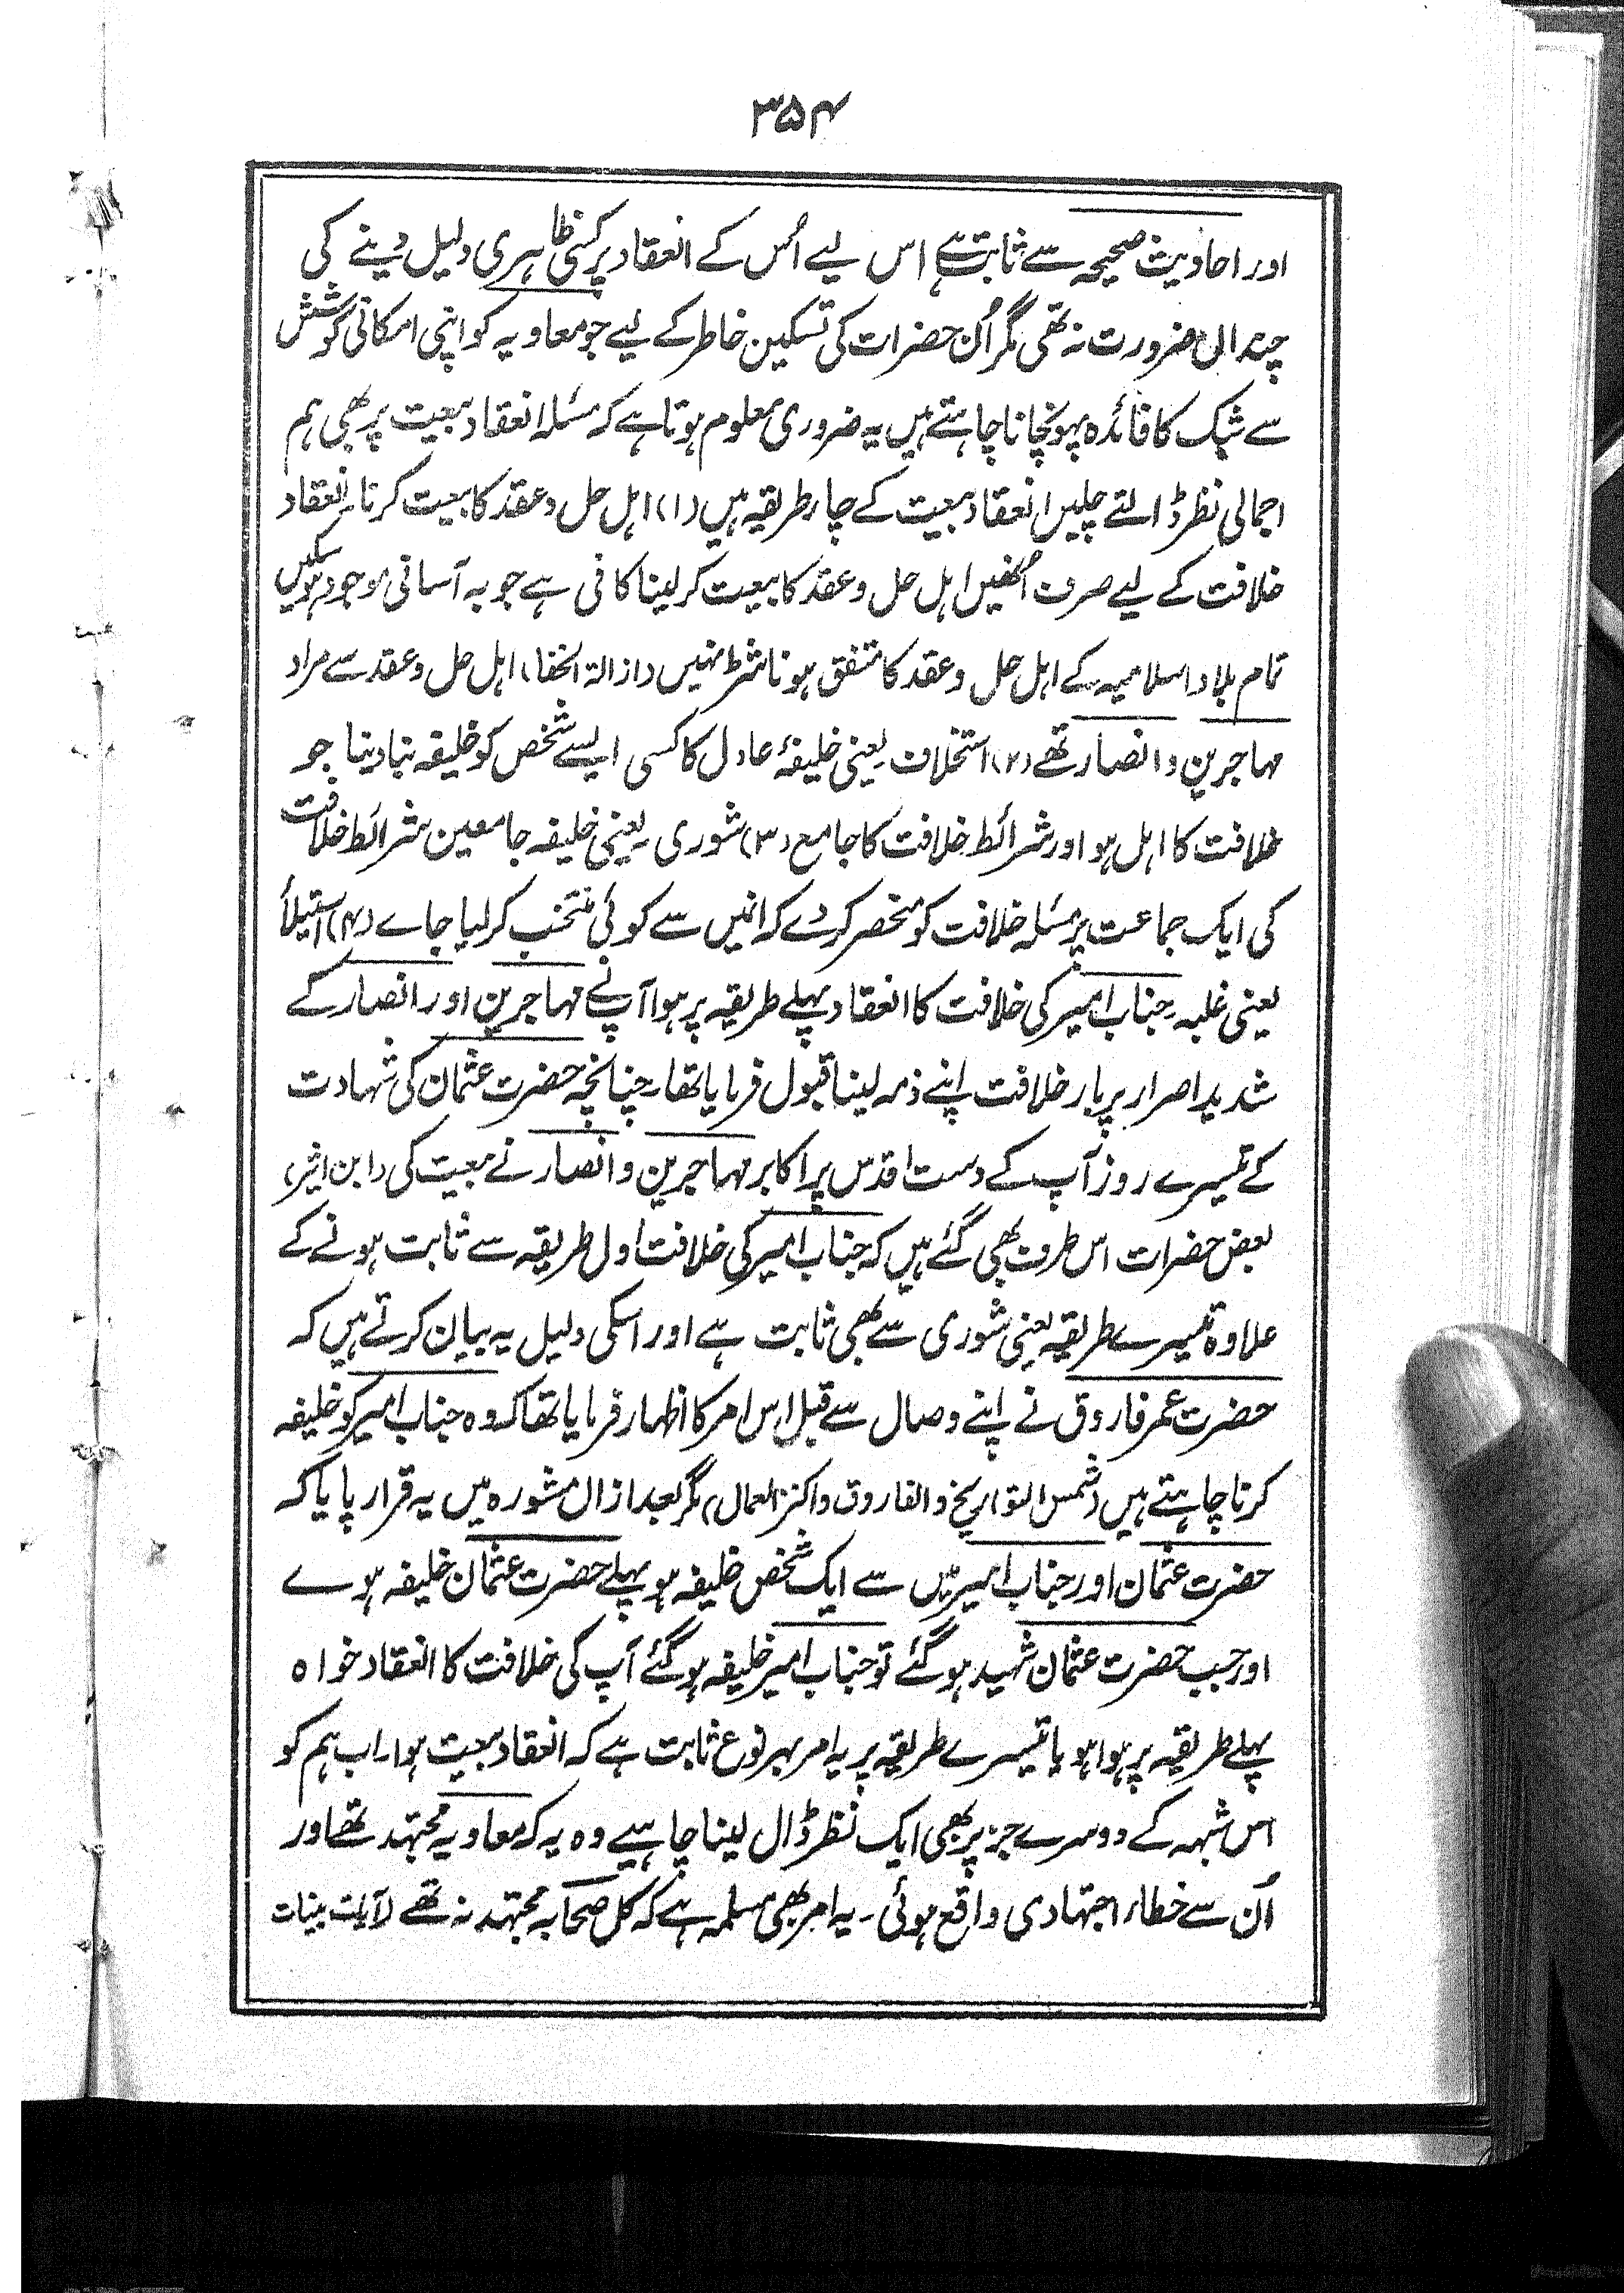 ۳۵۴
اور احادیث صحیحہ سے ثابت ہے اس لیے اُس کے انعقاد پر کسی ظاہری دلیل دینے کی
چنداں ضرورت نہ تھی مگر اُن حضرات کی تسکین خاطر کے لیے جو معاویہ کو اپنی امکانی کوشش
سے شک کا فائدہ پہونچانا چاہتے ہیں یہ ضروری معلوم ہوتا ہے کہ مسٔلہ انعقاد بیعت پر بھی ہم
اجمالی نظر ڈالتے چلیں انعقاد بیعت کے چار طریقہ ہیں (۱) اہل حل و عقد کا بیعت کرنا انعقاد
خلافت کے لیے صرف اُنھیں اہل حل و عقد کا بیعت کر لینا کافی ہے جو بہ آسانی موجود ہو سکیں
تمام بلاد اسلامیہ کے اہل حل و عقد کا متفق ہونا شرط نہیں (ازالۃ الخفا) اہل حل و عقد سے مراد
مہاجرین و انصار تھے (۲) استخلاف یعنی خلیفۂ عادل کا کسی ایسے شخص کو خلیفہ بنا دینا جو
خلافت کا اہل ہو اور شرائط خلافت کا جامع (۳) شوری یعنی خلیفہ جامعین شرائط خلافت
کی ایک جماعت پر مسٔلہ خلافت کو منحصر کر دے کہ انمیں سے کوئی منتخب کر لیا جاے (۴) استیلأ
یعنی غلبہ۔ جناب امیر کی خلافت کا انعقاد پہلے طریقہ پر ہوا آپ نے مہاجرین اور انصار کے
شدید اصرار پر بار خلافت اپنے ذمہ لینا قبول فرمایا تھا۔ چنانچہ حضرت عثمان کی شہادت
کے تیسرے روز آپ کے دست اقدس پر اکابر مہاجرین و انصار نے بیعت کی (ابن اثیر)
بعض حضرات اس طرف بھی گئے ہیں کہ جناب امیر کی خلافت اول طریقہ سے ثابت ہونے کے
علاوہ تیسرے طریقہ یعنی شوری سے بھی ثابت ہے اور اسکی دلیل یہ بیان کرتے ہیں کہ
حضرت عمر فاروق نے اپنے وصال سے قبل اس امر کا اظہار فرمایا تھا کہ وہ جناب امیر کو خلیفہ
کرنا چاہتے ہیں (شمس التواریخ و الفاروق و کنز العمال) مگر بعد ازاں مشورہ میں یہ قرار پایا کہ
حضرت عثمان اور جناب امیر میں سے ایک شخص خلیفہ ہو پہلے حضرت عثمان خلیفہ ہوے
اور جب حضرت عثمان شہید ہو گئے تو جناب امیر خلیفہ ہو گئے آپ کی خلافت کا انعقاد خواہ
پہلے طریقہ پر ہوا ہو یا تیسرے طریقہ پر یہ امر بہر نوع ثابت ہے کہ انعقاد بیعت ہوا۔ اب ہم کو
اس شبہہ کے دوسرے جز پر بھی ایک نظر ڈال لینا چاہیے وہ یہ کہ معاویہ مجتہد تھے اور
اُن سے خطاء اجتہادی واقع ہوئی۔ یہ امر بھی مسلمہ ہے کہ کل صحابہ مجتہد نہ تھے (آیات بینات